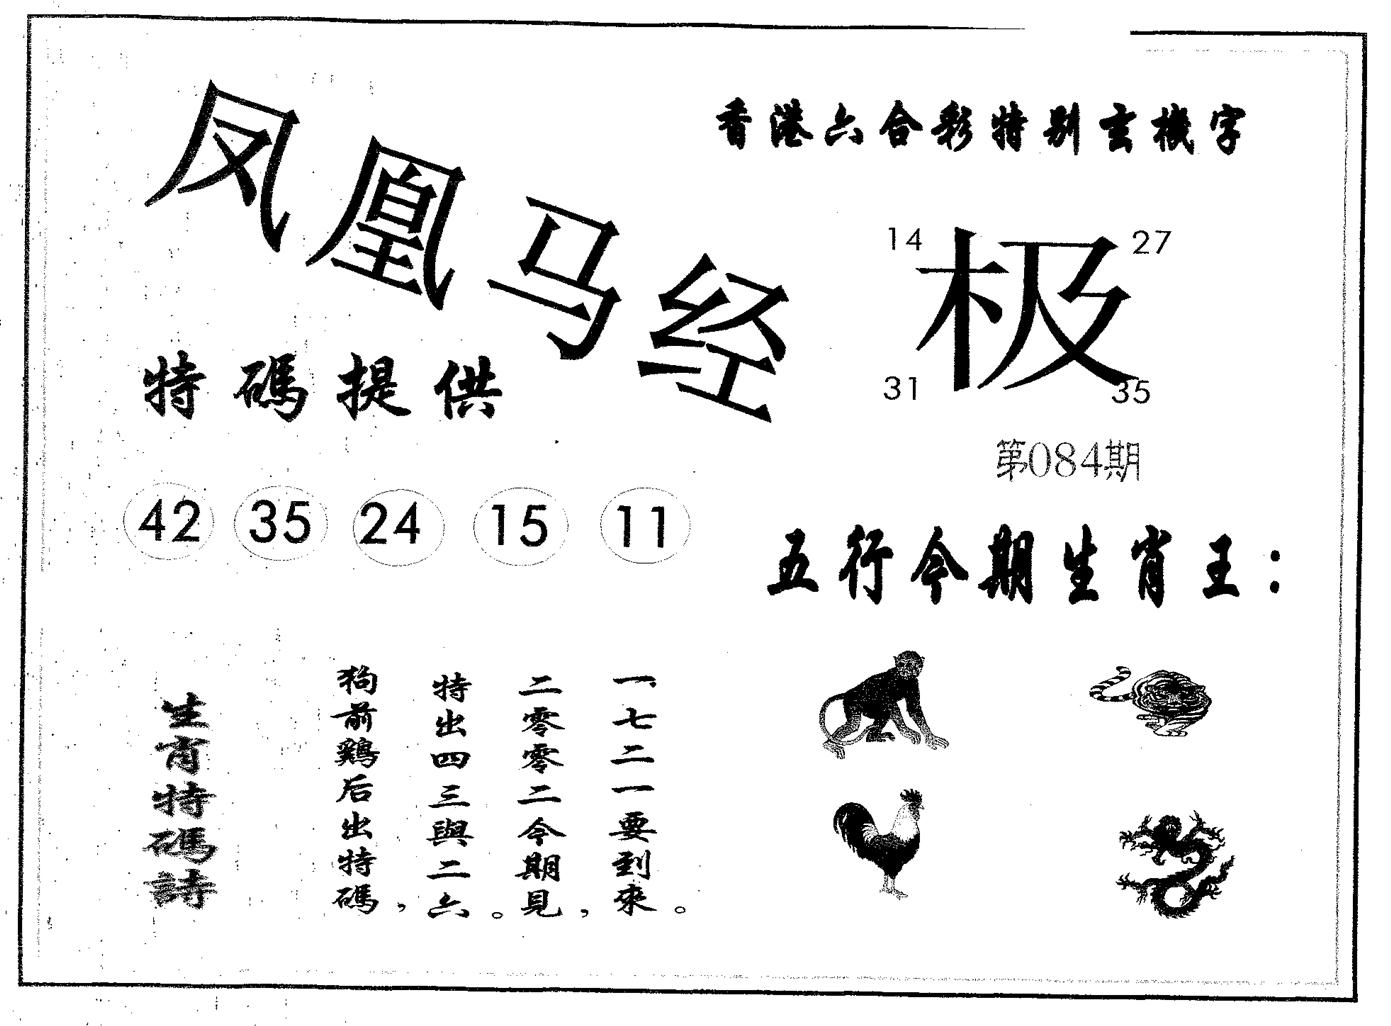 凤凰马经
香港六合彩特别玄機字
14
27
极
31
35
特碼提供
第084期
42 35 24 15 11
五行今期生肖王：
生肖特碼詩
狗前鷄后出特碼，
特出四三與二六。
二零零二今期見，
一七二一要到來。